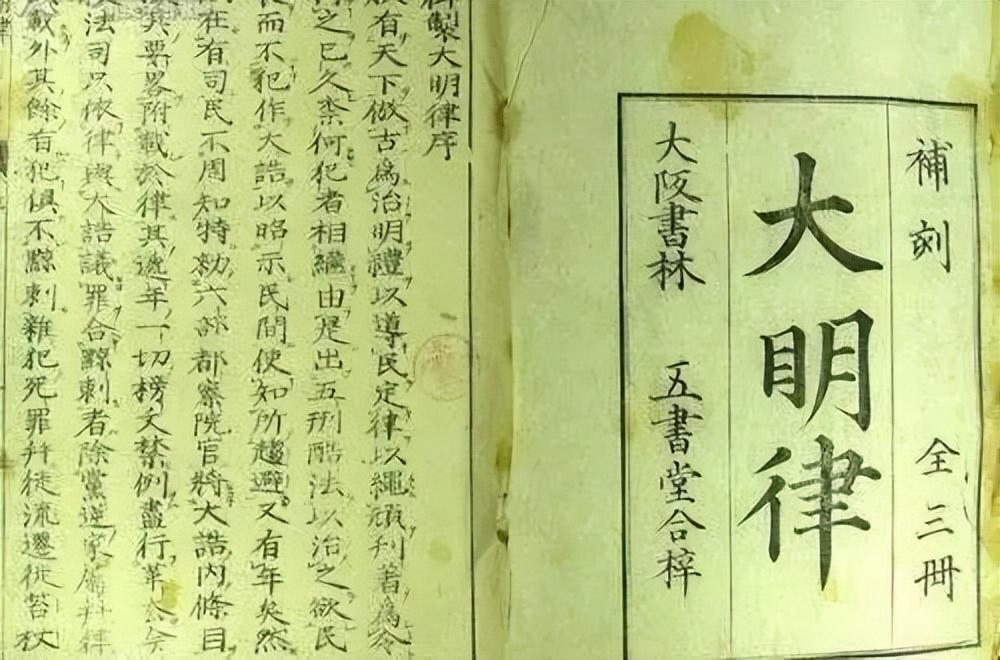 補刻 全三冊
大明律
大阪書林 五書堂合梓
製大明律序
有天下倣古爲治明禮以導民定律以繩頑刊著爲令
之已久柰何犯者相繼由是出五刑酷法以治之欲民
而不犯作大誥以昭示民間使知所趨避又有年矣然
在有司民不周知特勑六部都察院官將大誥內條目
其要畧附載於律其遞年一切榜文禁例盡行革去今
法司只依律與大誥議罪合黥刺者除黨逆家屬幷律
載外其餘有犯俱不黥刺雜犯死罪幷徒流遷徙笞杖